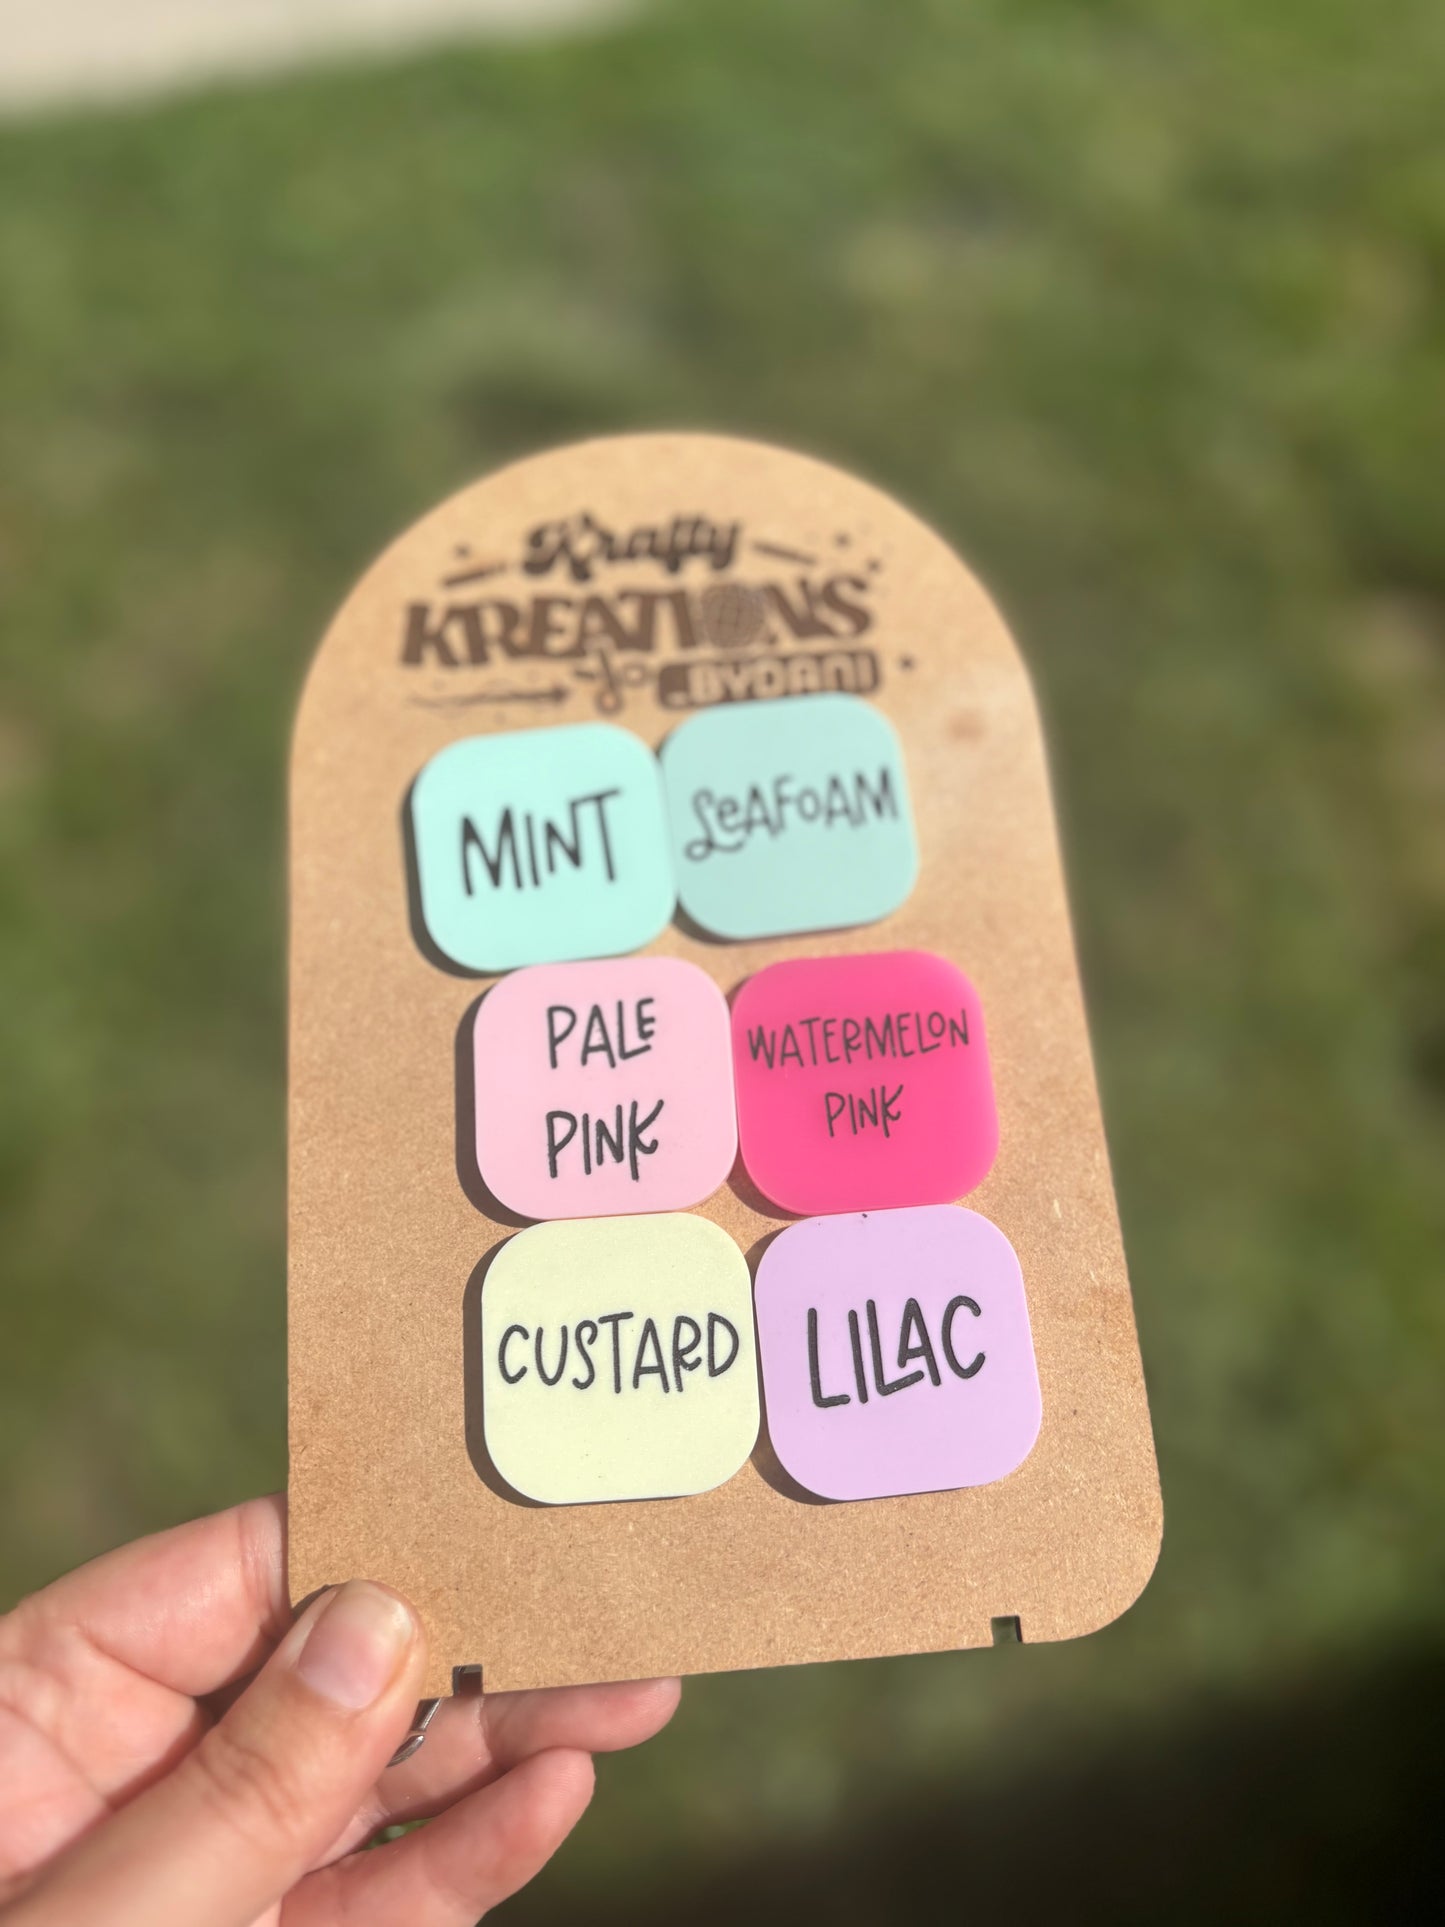 Krafty
KREATIONS
.BYDANI
MINT
SEAFOAM
PALE
PINK
WATERMELON
PINK
CUSTARD
LILAC